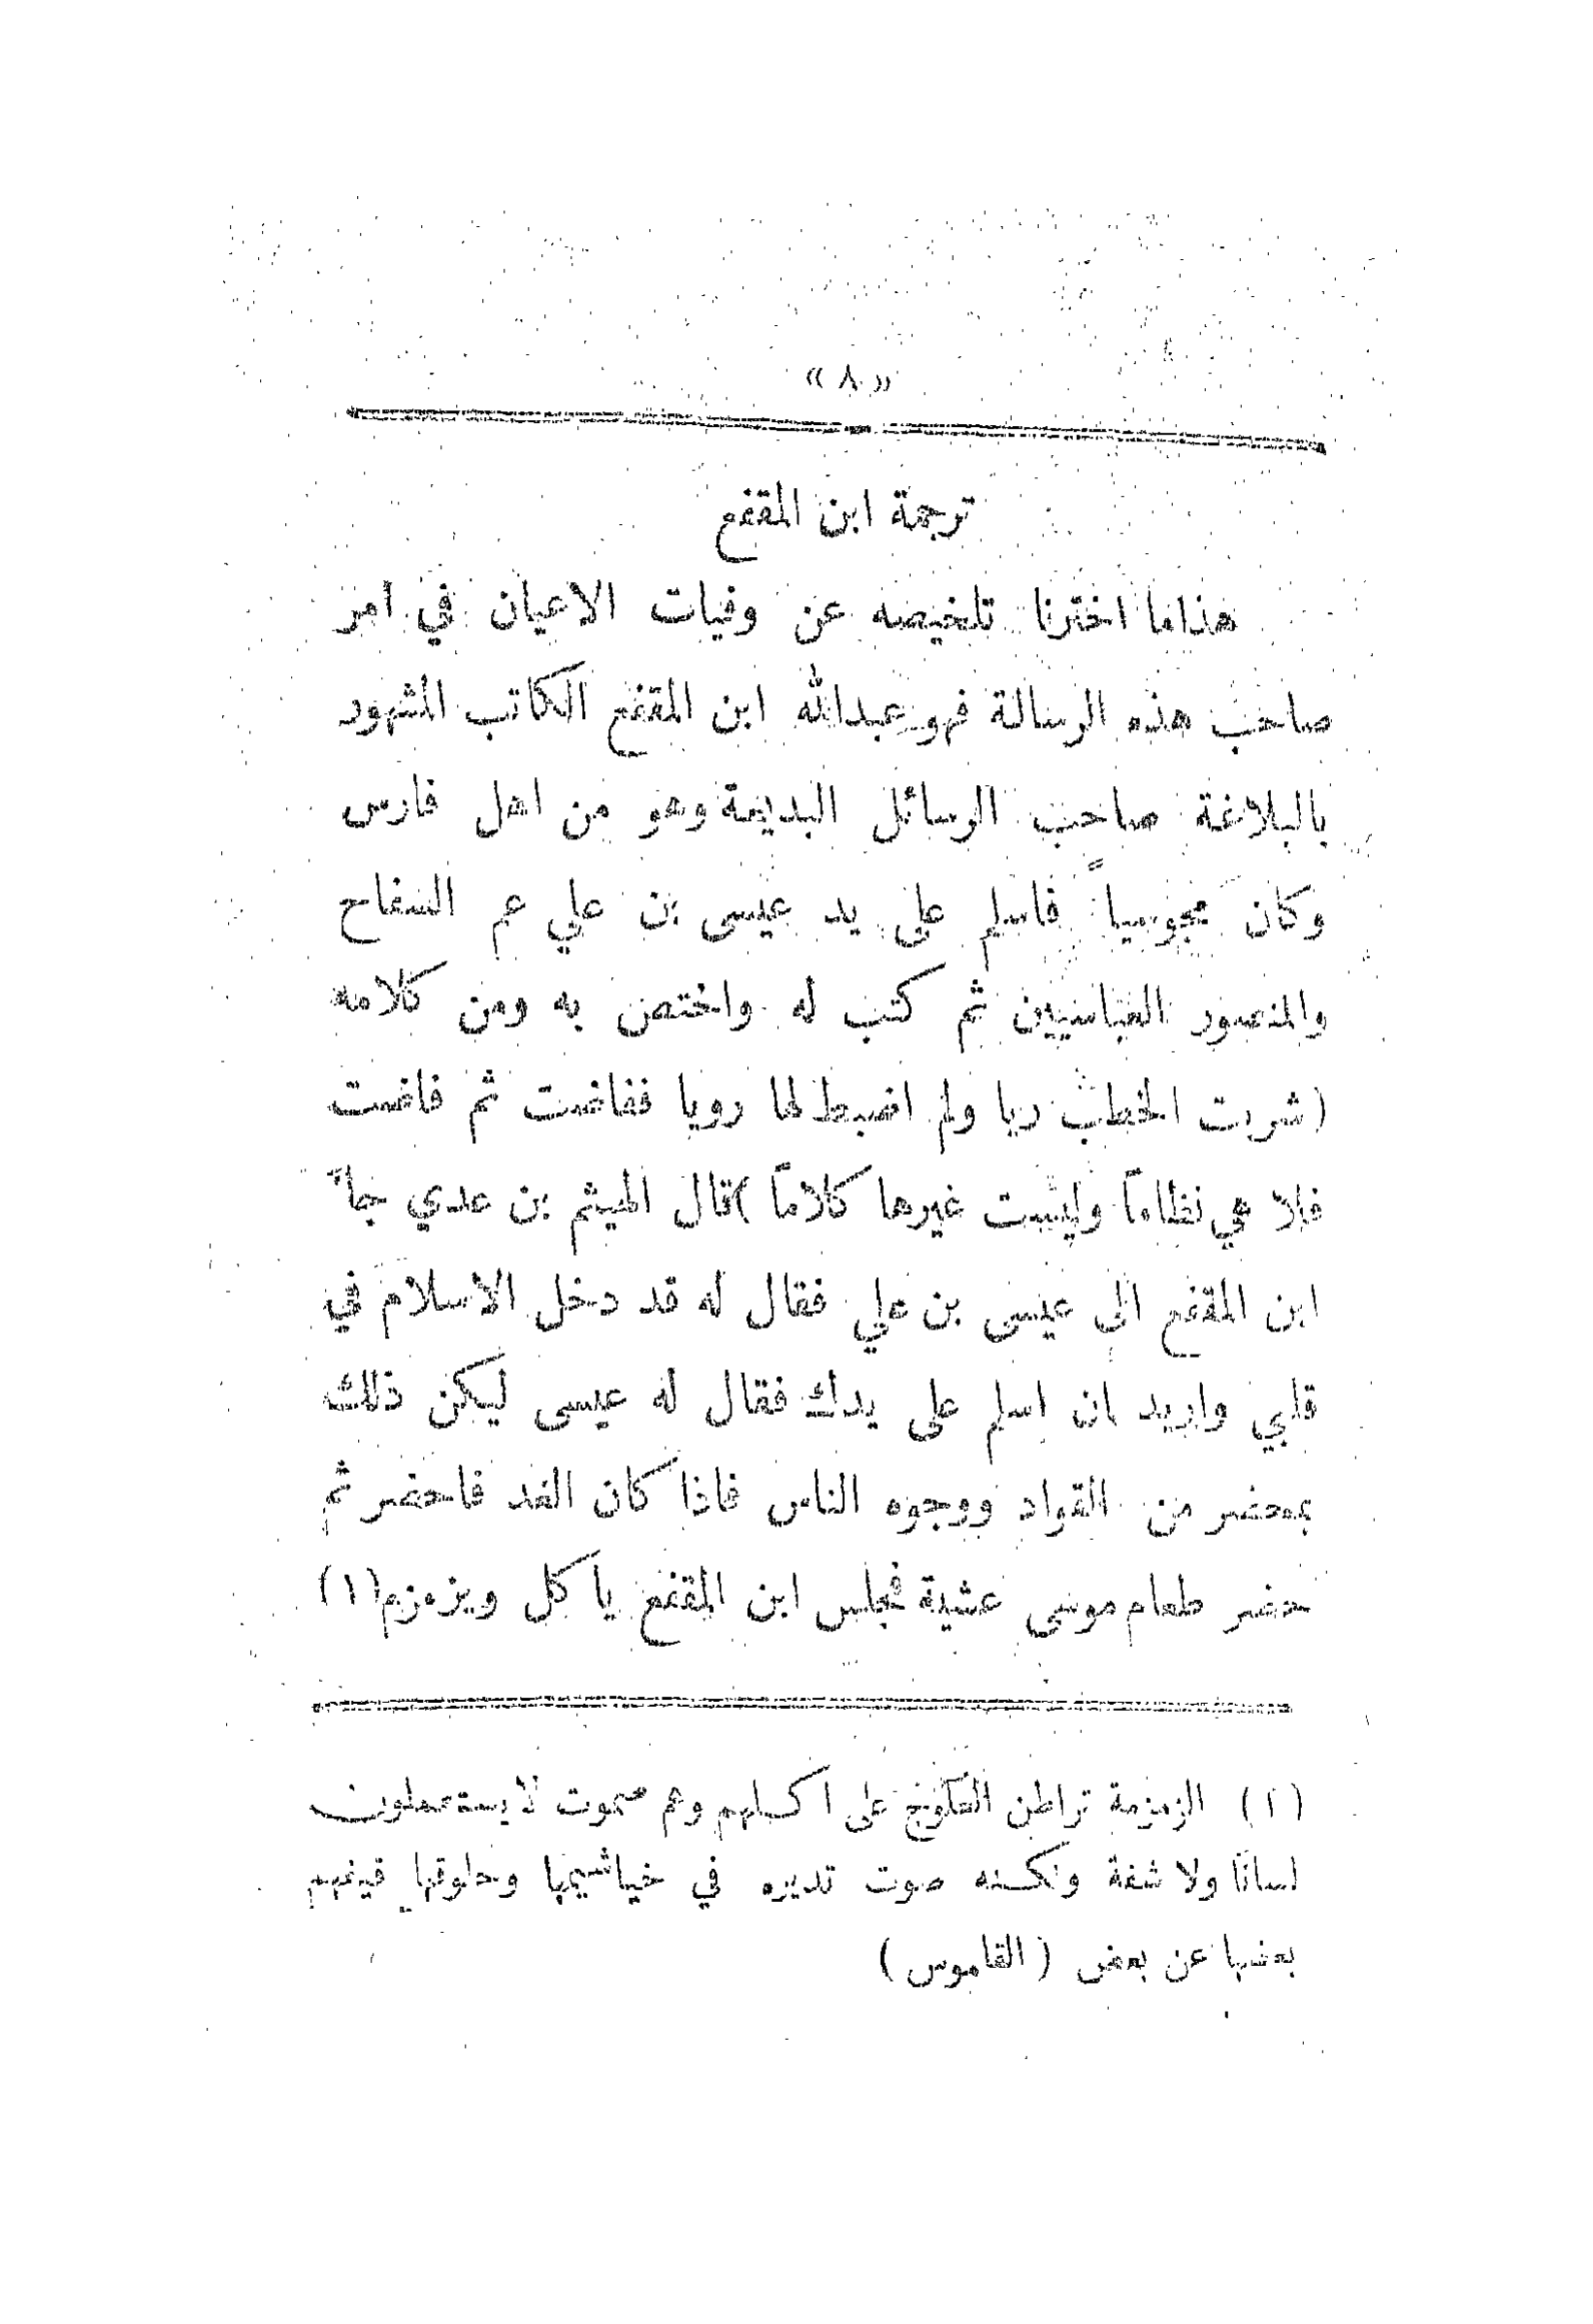 « ٨ »
ترجمة ابن المقفع
هذا ما اخترنا تلخيصه عن وفيات الاعيان في امر
صاحب هذه الرسالة فهو عبدالله ابن المقفع الكاتب المشهور
بالبلاغة صاحب الرسائل البديعة وهو من اهل فارس
وكان مجوسياً فاسلم على يد عيسى بن علي عم السفاح
والمنصور العباسيين ثم كتب له واختص به ومن كلامه
(شربت الخطب ريا ولم اضبط لها رويا ففاضت ثم فاضت
فلا هي نظاماً وليست غيرها كلاماً) قال الهيثم بن عدي جاء
ابن المقفع الى عيسى بن علي فقال له قد دخل الاسلام في
قلبي واريد ان اسلم على يدك فقال له عيسى ليكن ذلك
بمحضر من القواد ووجوه الناس فاذا كان الغد فاحضر ثم
حضر طعام موسى عشية فجلس ابن المقفع يأكل ويزمزم(١)
(١) الزمزمة تراطن العلوج على اكلهم وهم صموت لا يستعملون
لسانًا ولا شفة ولكنه صوت تديره في خياشيمها وحلوقها فيفهم
بعضها عن بعض (القاموس)